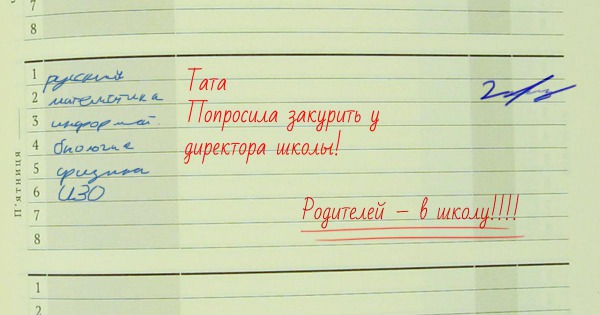 7
8
1 русский
2 математика
3 информат.
4 биология
5 физика
6 ИЗО
7
8
П'ятниця
Тата
Попросила закурить у
директора школы!
Родителей – в школу!!!!
1
2